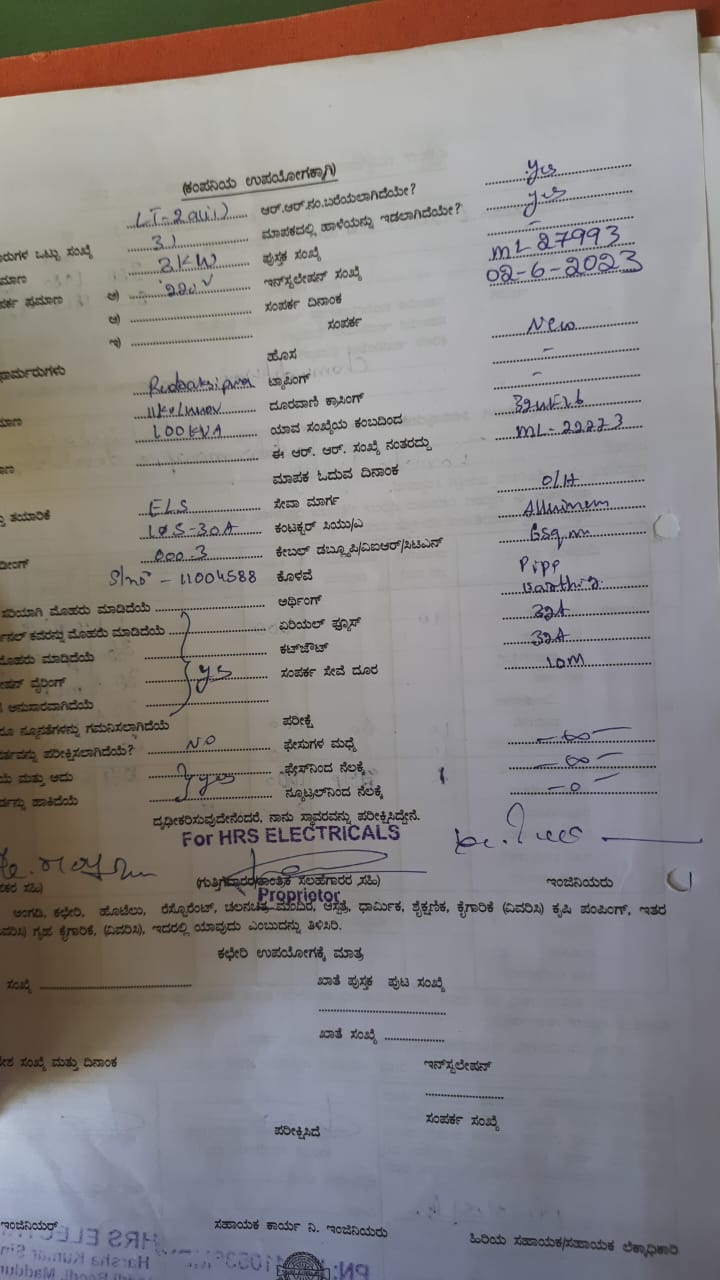 (ಕಂಪನಿಯ ಉಪಯೋಗಕ್ಕಾಗಿ)
ಆರ್.ಆರ್.ನಂ.ಬರೆಯಲಾಗಿದೆಯೇ? Yes
ರುಗಳ ಒಟ್ಟು ಸಂಖ್ಯೆ 31 ಮಾಪಕದಲ್ಲಿ ಹಾಳೆಯನ್ನು ಇಡಲಾಗಿದೆಯೇ? Yes
ಮಾಣ 3KW ಪುಸ್ತಕ ಸಂಖ್ಯೆ -
ರ್ಕ ಪ್ರಮಾಣ ಅ) 220V ಇನ್‌ಸ್ಟಲೇಷನ್ ಸಂಖ್ಯೆ ML27993
ಆ) ಸಂಪರ್ಕ ದಿನಾಂಕ 02-6-2023
ಇ) ಸಂಪರ್ಕ
ಾರ್ಮರುಗಳು ಹೊಸ New
ಟ್ಯಾಪಿಂಗ್ -
ಮಾಣ 100KVA ದೂರವಾಣಿ ಕ್ರಾಸಿಂಗ್ -
ಯಾವ ಸಂಖ್ಯೆಯ ಕಂಬದಿಂದ
ಮಾಣ ಈ ಆರ್. ಆರ್. ಸಂಖ್ಯೆ ನಂತರದ್ದು ML-22273
ಮಾಪಕ ಓದುವ ದಿನಾಂಕ
ತಯಾರಿಕೆ ELS ಸೇವಾ ಮಾರ್ಗ O/H
10S-30A ಕಂಟಕ್ಟರ್ ಸಿಯು/ಎ
ೀಡಿಂಗ್ 000.3 ಕೇಬಲ್ ಡಬ್ಲ್ಯೂಪಿ/ವಿಐಆರ್/ಸಿಟಿಎನ್ 6sqm
S/no - 11004588 ಕೊಳವೆ PIPP
ಸರಿಯಾಗಿ ಮೊಹರು ಮಾಡಿದೆಯೆ ಆರ್ಥಿಂಗ್
ನಲ್ ಕವರನ್ನು ಮೊಹರು ಮಾಡಿದೆಯೆ ಏರಿಯಲ್ ಫ್ಯೂಸ್ 32A
ಮೊಹರು ಮಾಡಿದೆಯೆ ಕಟ್‌ಔಟ್ 32A
ಷನ್ ವೈರಿಂಗ್ yes ಸಂಪರ್ಕ ಸೇವೆ ದೂರ 10M
ಅನುಸಾರವಾಗಿದೆಯೆ
ರೂ ನ್ಯೂನತೆಗಳನ್ನು ಗಮನಿಸಲಾಗಿದೆಯೆ ಪರೀಕ್ಷೆ
ರ್ತವನ್ನು ಪರೀಕ್ಷಿಸಲಾಗಿದೆಯೆ? NO ಫೇಸುಗಳ ಮಧ್ಯೆ -∞-
ಯೆ ಮತ್ತು ಅದು yes ಫೇಸ್‌ನಿಂದ ನೆಲಕ್ಕೆ -∞-
ರ್ಡನ್ನು ಹಾಕಿದೆಯೆ ನ್ಯೂಟ್ರಲ್‌ನಿಂದ ನೆಲಕ್ಕೆ -0-
ದೃಢೀಕರಿಸುವುದೇನೆಂದರೆ, ನಾನು ಸ್ಥಾವರವನ್ನು ಪರೀಕ್ಷಿಸಿದ್ದೇನೆ.
For HRS ELECTRICALS
(ಗುತ್ತಿಗೆದಾರರ/ತಾಂತ್ರಿಕ ಸಲಹೆಗಾರರ ಸಹಿ) ಇಂಜಿನಿಯರು
Proprietor
ಅಂಗಡಿ, ಕಛೇರಿ, ಹೊಟೆಲು, ರೆಸ್ಟೊರೆಂಟ್, ಚಲನಚಿತ್ರ ಮಂದಿರ, ಆಸ್ಪತ್ರೆ, ಧಾರ್ಮಿಕ, ಶೈಕ್ಷಣಿಕ, ಕೈಗಾರಿಕೆ (ವಿವರಿಸಿ) ಕೃಷಿ ಪಂಪಿಂಗ್, ಇತರ
ವರಿಸಿ) ಗೃಹ ಕೈಗಾರಿಕೆ, (ವಿವರಿಸಿ), ಇದರಲ್ಲಿ ಯಾವುದು ಎಂಬುದನ್ನು ತಿಳಿಸಿರಿ.
ಕಛೇರಿ ಉಪಯೋಗಕ್ಕೆ ಮಾತ್ರ
ಸಂಖ್ಯೆ ಖಾತೆ ಪುಸ್ತಕ ಪುಟ ಸಂಖ್ಯೆ
ಖಾತೆ ಸಂಖ್ಯೆ
ಶ ಸಂಖ್ಯೆ ಮತ್ತು ದಿನಾಂಕ ಇನ್‌ಸ್ಟಲೇಷನ್
ಸಂಪರ್ಕ ಸಂಖ್ಯೆ
ಪರೀಕ್ಷಿಸಿದೆ
ಇಂಜಿನಿಯರ್ ಸಹಾಯಕ ಕಾರ್ಯ ನಿ. ಇಂಜಿನಿಯರು ಹಿರಿಯ ಸಹಾಯಕ/ಸಹಾಯಕ ಲೆಕ್ಕಾಧಿಕಾರಿ